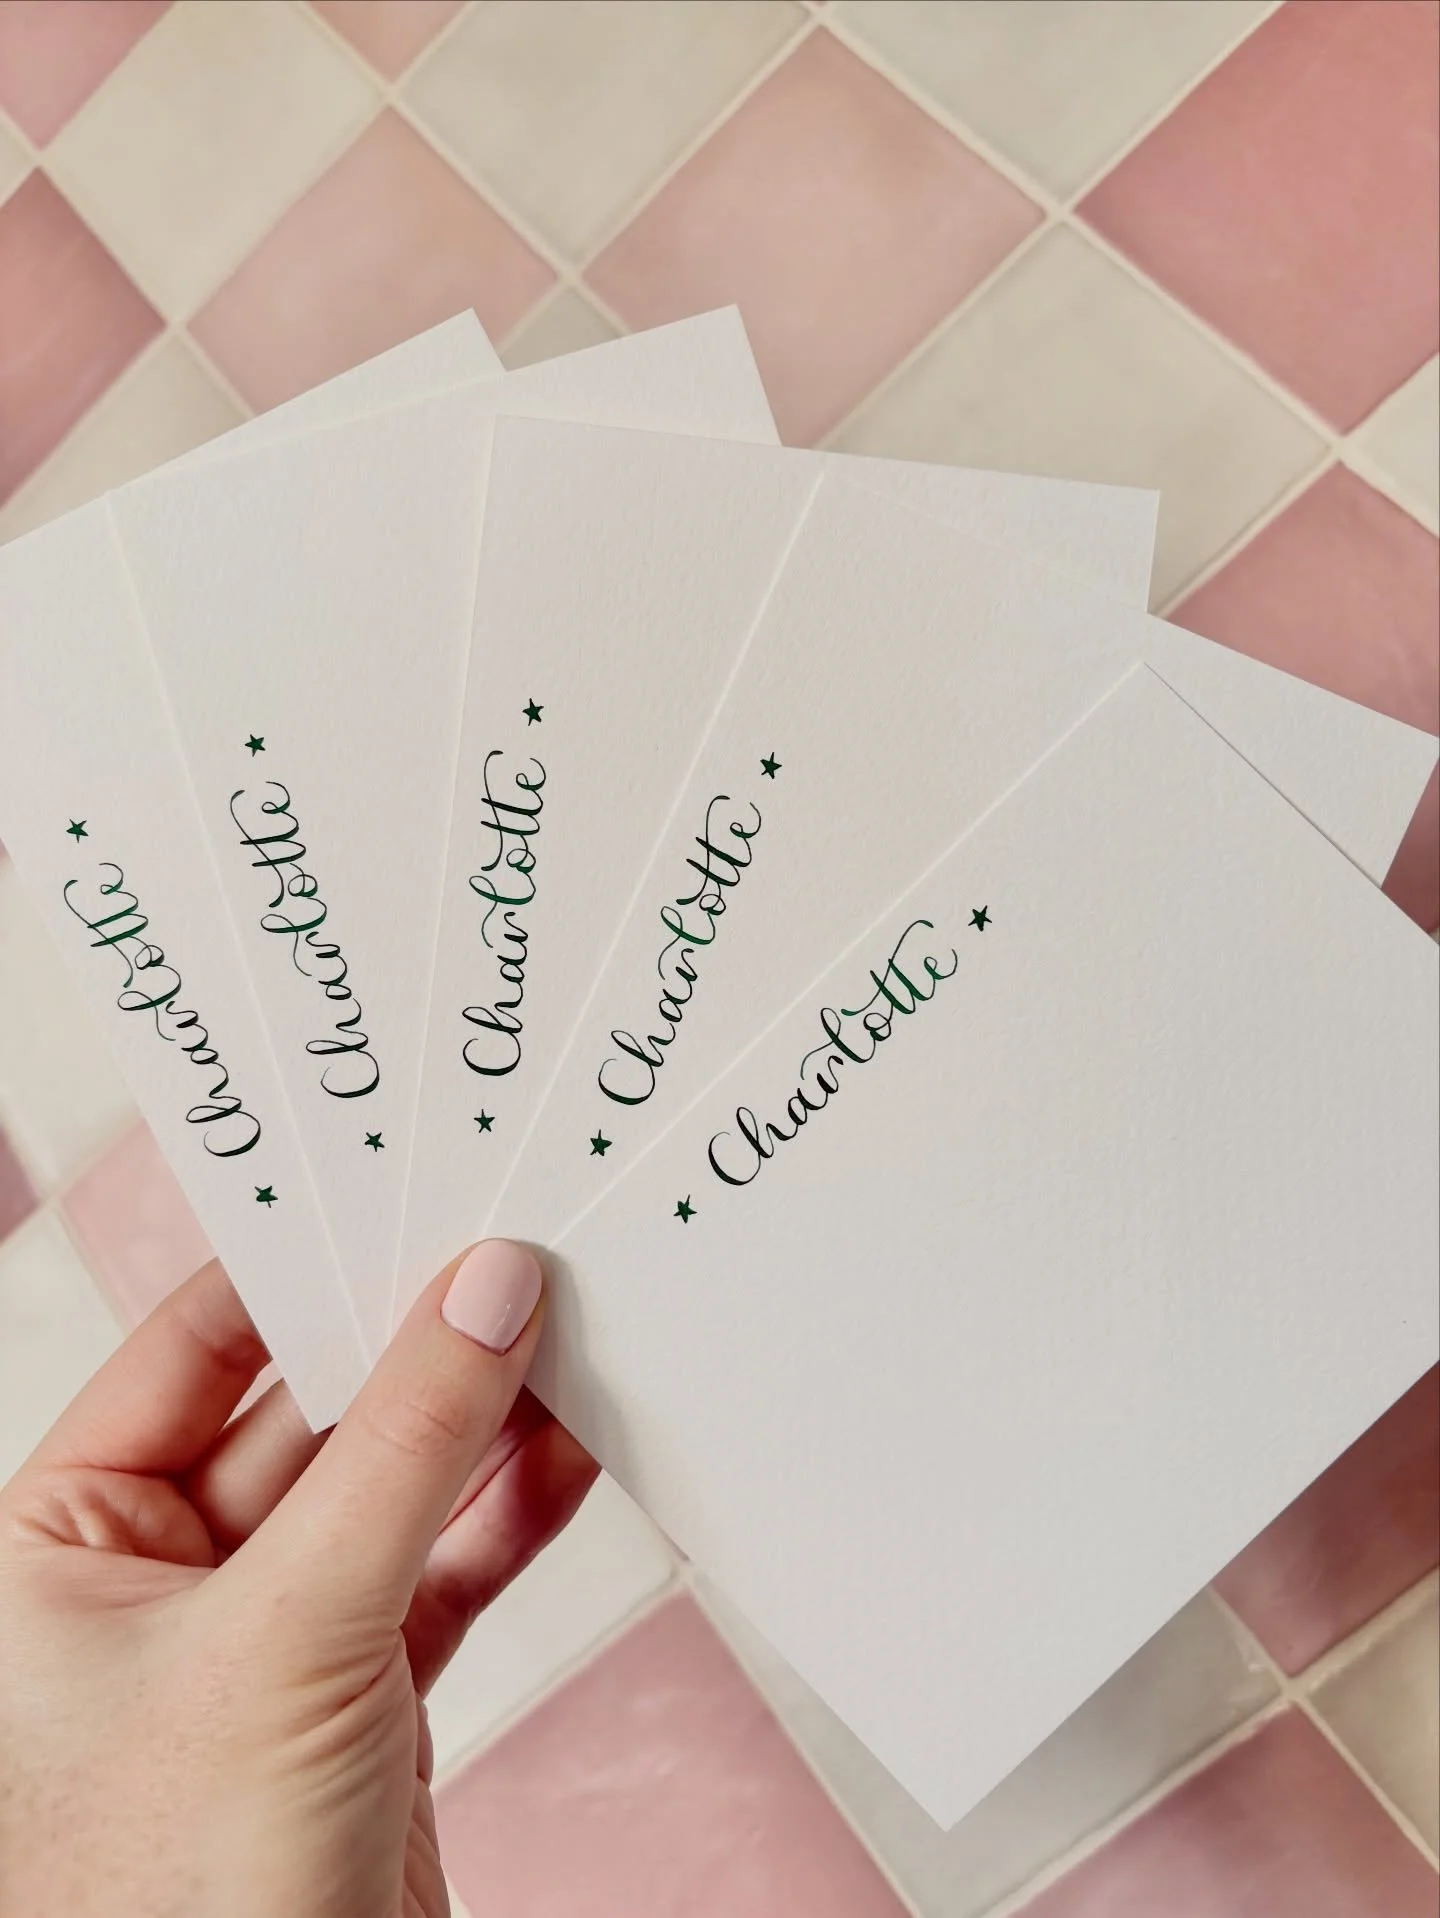 ★ Charlotte ★
★ Charlotte ★
★ Charlotte ★
★ Charlotte ★
★ Charlotte ★